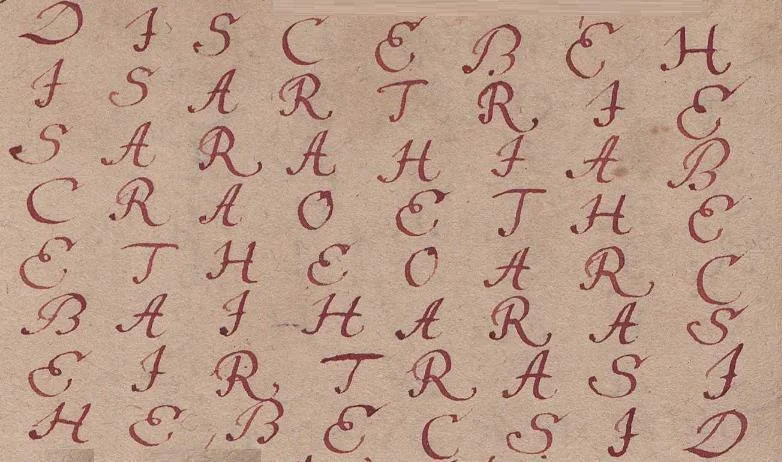 D I S C E B E H
I S A R T R I E
S A R A H I A B
C R A O E T H E
E T H E O A R C
B A I H A R A S
E I R T R A S I
H E B E C S I D